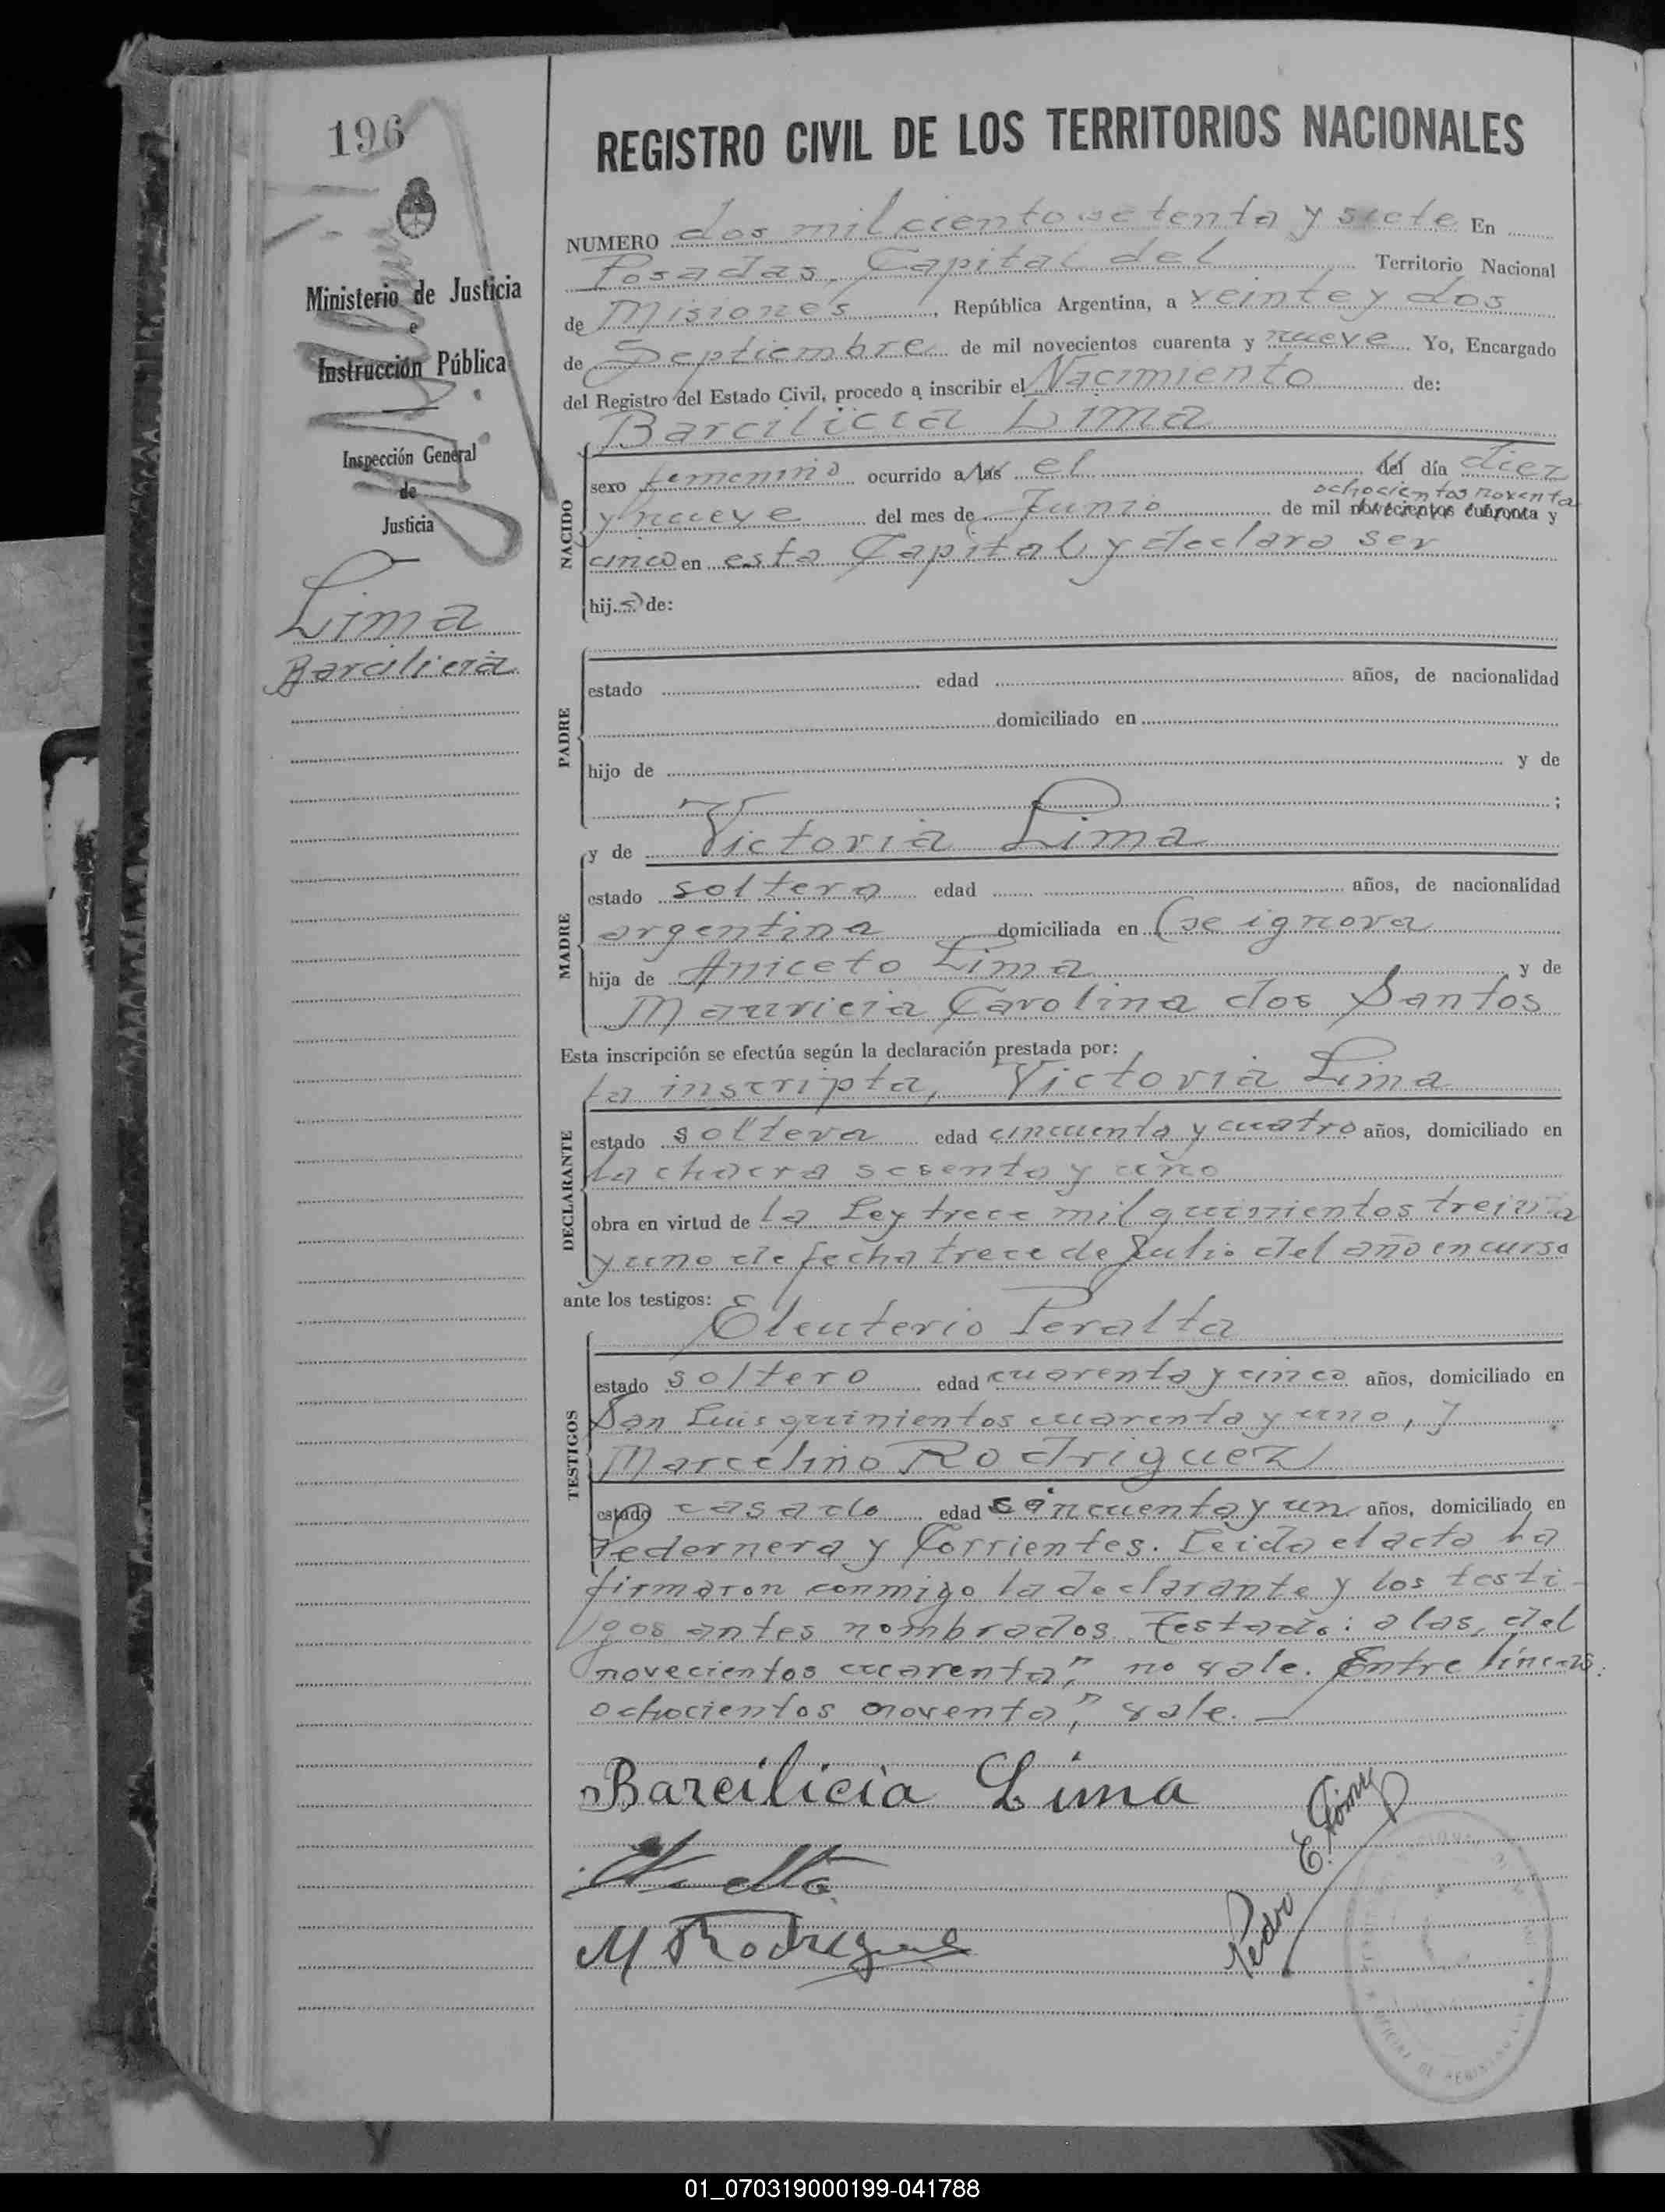 196
REGISTRO CIVIL DE LOS TERRITORIOS NACIONALES
Ministerio de Justicia
e
Instrucción Pública
Inspección General
de
Justicia
Lima
Barcilicia
NUMERO dos mil ciento setenta y siete En
Posadas, Capital del Territorio Nacional
de Misiones, República Argentina, a veinte y dos
de Septiembre de mil novecientos cuarenta y nueve Yo, Encargado
del Registro del Estado Civil, procedo a inscribir el Nacimiento de:
Barcilicia Lima
NACIDO
sexo femenino ocurrido a/las el del día diez
ochocientos noventa
y nueve del mes de Junio de mil novecientos cuaronta y
cinco en esta Capital y declara ser
hij a de:
PADRE
estado edad años, de nacionalidad
domiciliado en
hijo de y de
;
MADRE
y de Victoria Lima
estado soltera edad años, de nacionalidad
argentina domiciliada en (se ignora
hija de Aniceto Lima y de
Mauricia Carolina dos Santos
Esta inscripción se efectúa según la declaración prestada por:
la inscripta, Victoria Lima
DECLARANTE
estado soltera edad cincuenta y cuatro años, domiciliado en
la chacra sesenta y uno
obra en virtud de la Ley trece mil quinientos treinta
y uno de fecha trece de Julio del año en curso
ante los testigos:
Eleuterio Peralta
TESTIGOS
estado soltero edad cuarenta y cinco años, domiciliado en
San Luis quinientos cuarenta y uno, y
Marcelino Rodriguez
estado casado edad cincuenta y un años, domiciliado en
Pedernera y Corrientes. Leida el acta la
firmaron conmigo la declarante y los testi-
gos antes nombrados. Testado: a las, del
novecientos cuarenta," no vale. Entre líneas:
ochocientos noventa," vale.
Barcilicia Lima
M Rodriguez
Pedro E.
01_070319000199-041788